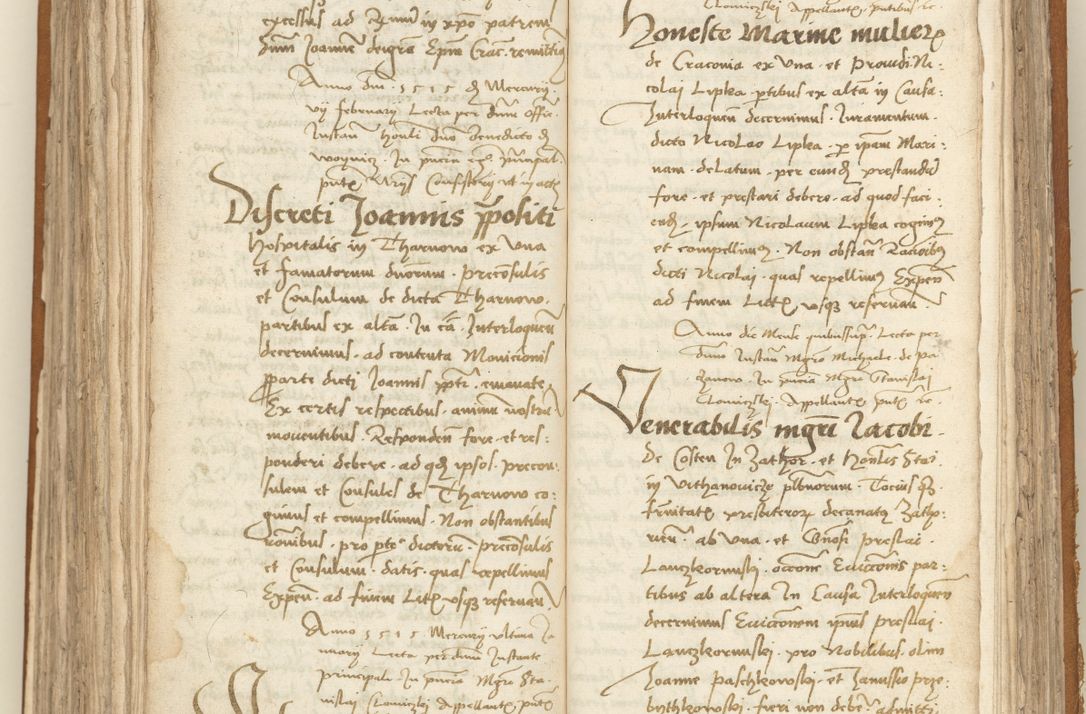 excessus ad Rmu in xpo patrem
dnm Joannē dei gra Epm Crac. remittim
Anno dni 1515 die Mercurij
vij februarij Lecta per dnm Offic.
Instan honli dno Benedicto de
woynicz. In pncia
Consistorij et in actis
Discreti Joannis ppositi
hospitalis in Tharnow ex una
et famatorum duorum. preconsulis
et Consulum de dicta Tharnow.
partibus ex altā. In cā. Interloquen
decernimus. ad contenta Monicionis
pparte dicti Joannis pptr. emanate
Ex certis respectibus. animū nostrū
mouentibus. Responden fore. et res:
ponderi debere. ad qd ipsos. precon:
sulem et Consules de Tharnow co:
gimus et compellimus. Non obstantibus
rōnibus. pro pte dictoru. preconsulis
et Consulum. datis. quas repellimus
Expen. ad finem Litis usqz reseruan
Anno 1515 Mercurij ultima Ja
nuarij Lecta per dnm Instante
principali In pncia Mgro Sta.
nislai Clouiczskj Appellantis putis
Clouiczskj Appellantis. putibus re.
Honeste Marine mulieris
de Cracouia ex Una. et Prouidi Ni:
colaj Lipka. ptibus ex altā in Causa:
Interloquen decernimus. Iuramentum.
dicto Nicolao Lipka. p ipam Mari:
nam. delatum. per eund prestandū
fore. et prestari debere. ad quod faci:
end. ipsum Nicolaum Lipka cogimus
et compellimus. Non obstan Racioibus
dicti Nicolai. quas repellimus Expen
ad finem Litis usqz reseruan
Anno die Mense quibussupra. Lecta per
dnm Instan Mgro Michaele. de pa
zanow. In pncia Mgro Stanislaj
Clouiczskj. Appellantis putis re.
Venerabilis mgri Jacobi.
De Costen In Zathor. et Honlis Stai.
in Withanouicze plbnorum Tocius qz.
frnitatis presbiteroru decanatus Zatho:
rien. ab Una. et Gnosi preslai.
Lanczkorunskj. occone Euiccionis par:
tibus ab altera In Causa Interloquen
decernimus Euiccionem ipius preslai.
Lanczkorunskj. pro Nobilibus olim
Joanne Paschkowskj. et Janussio prze:
bythkowskj. fieri non debe. admitti.